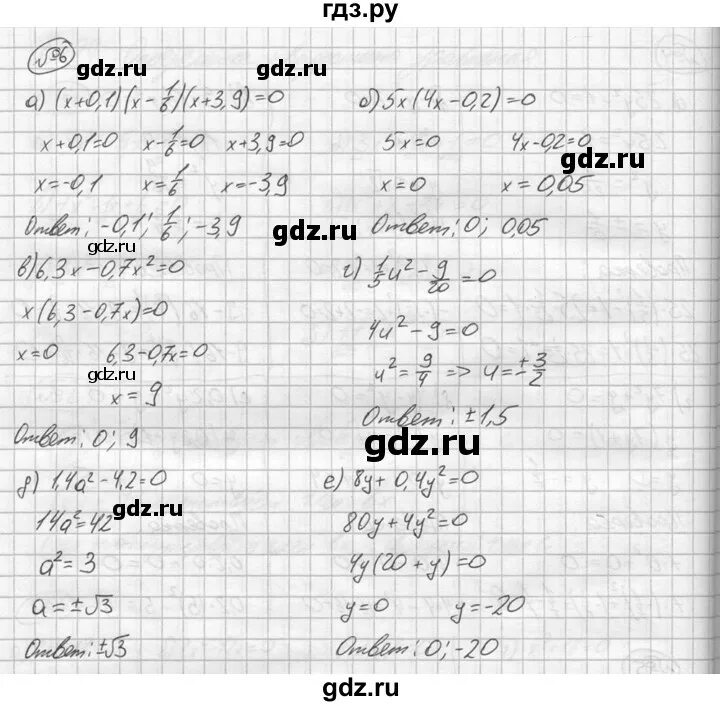 гдз.ру
№6
gdz.ru gdz.ru
а) (x+0,1)(x-1/6)(x+3,9)=0
x+0,1=0 x-1/6=0 x+3,9=0
x=-0,1 x=1/6 x=-3,9
Ответ: -0,1; 1/6; -3,9
gdz.ru
б) 5x(4x-0,2)=0
5x=0 4x-0,2=0
gdz.ru
x=0 x=0,05
Ответ: 0; 0,05
gdz.ru
в) 6,3x-0,7x²=0
x(6,3-0,7x)=0
x=0 6,3-0,7x=0
gdz.ru
x=9
Ответ: 0; 9
г) 1/5u²-9/20=0
4u²-9=0
u²=9/4 => u=±3/2
Ответ: ±1,5
gdz.ru
д) 1,4a²-4,2=0
gdz.ru
14a²=42
a²=3
a=±√3
Ответ: ±√3
е) 8y+0,4y²=0
80y+4y²=0
4y(20+y)=0
y=0 y=-20
Ответ: 0; -20
gdz.ru